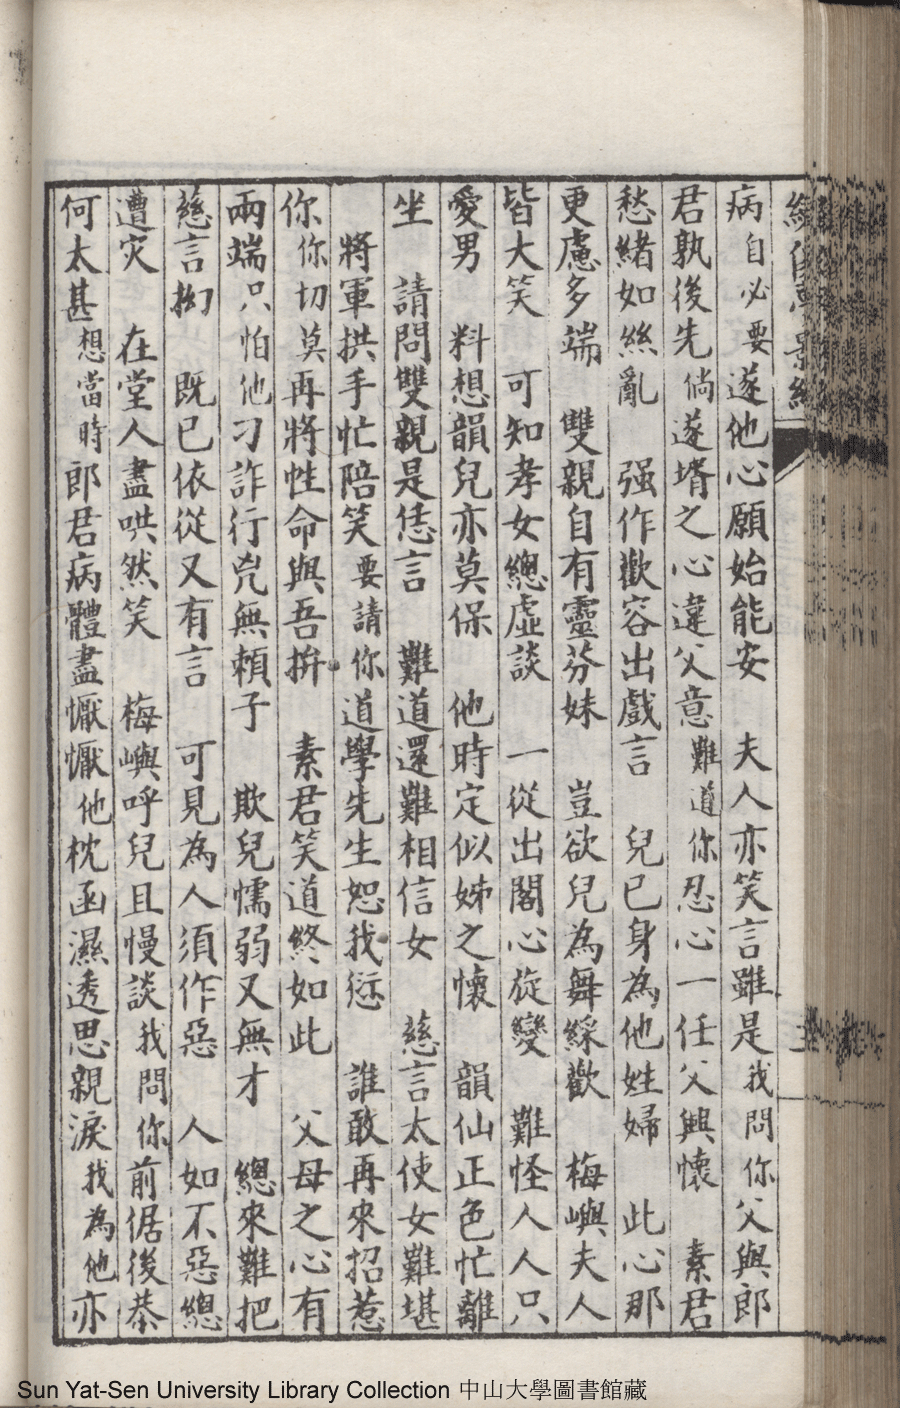 病自必要遂他心願始能安　夫人亦笑言雖是我問你父與郎
君孰後先倘遂壻之心違父意難道你忍心一任父興懷　素君
愁緒如絲亂　强作歡容出戲言　兒已身為他姓婦　此心那
更慮多端　雙親自有靈芬妹　豈欲兒為舞綵歡　梅嶼夫人
皆大笑　可知孝女總虛談　一從出閣心旋變　難怪人人只
愛男　料想韻兒亦莫保　他時定似姊之懷　韻仙正色忙離
坐　請問雙親是恁言　難道還難相信女　慈言太使女難堪
將軍拱手忙陪笑要請你道學先生恕我愆　誰敢再來招惹
你你切莫再將性命與吾拚　素君笑道終如此　父母之心有
兩端只怕他刁詐行兇無賴子　欺兒懦弱又無才　總來難把
慈言拗　既已依從又有言　可見為人須作惡　人如不惡總
遭灾　在堂人盡哄然笑　梅嶼呼兒且慢談我問你前倨後恭
何太甚想當時郎君病體盡懨懨他枕函濕透思親淚我為他亦
Sun Yat-Sen University Library Collection 中山大學圖書館藏